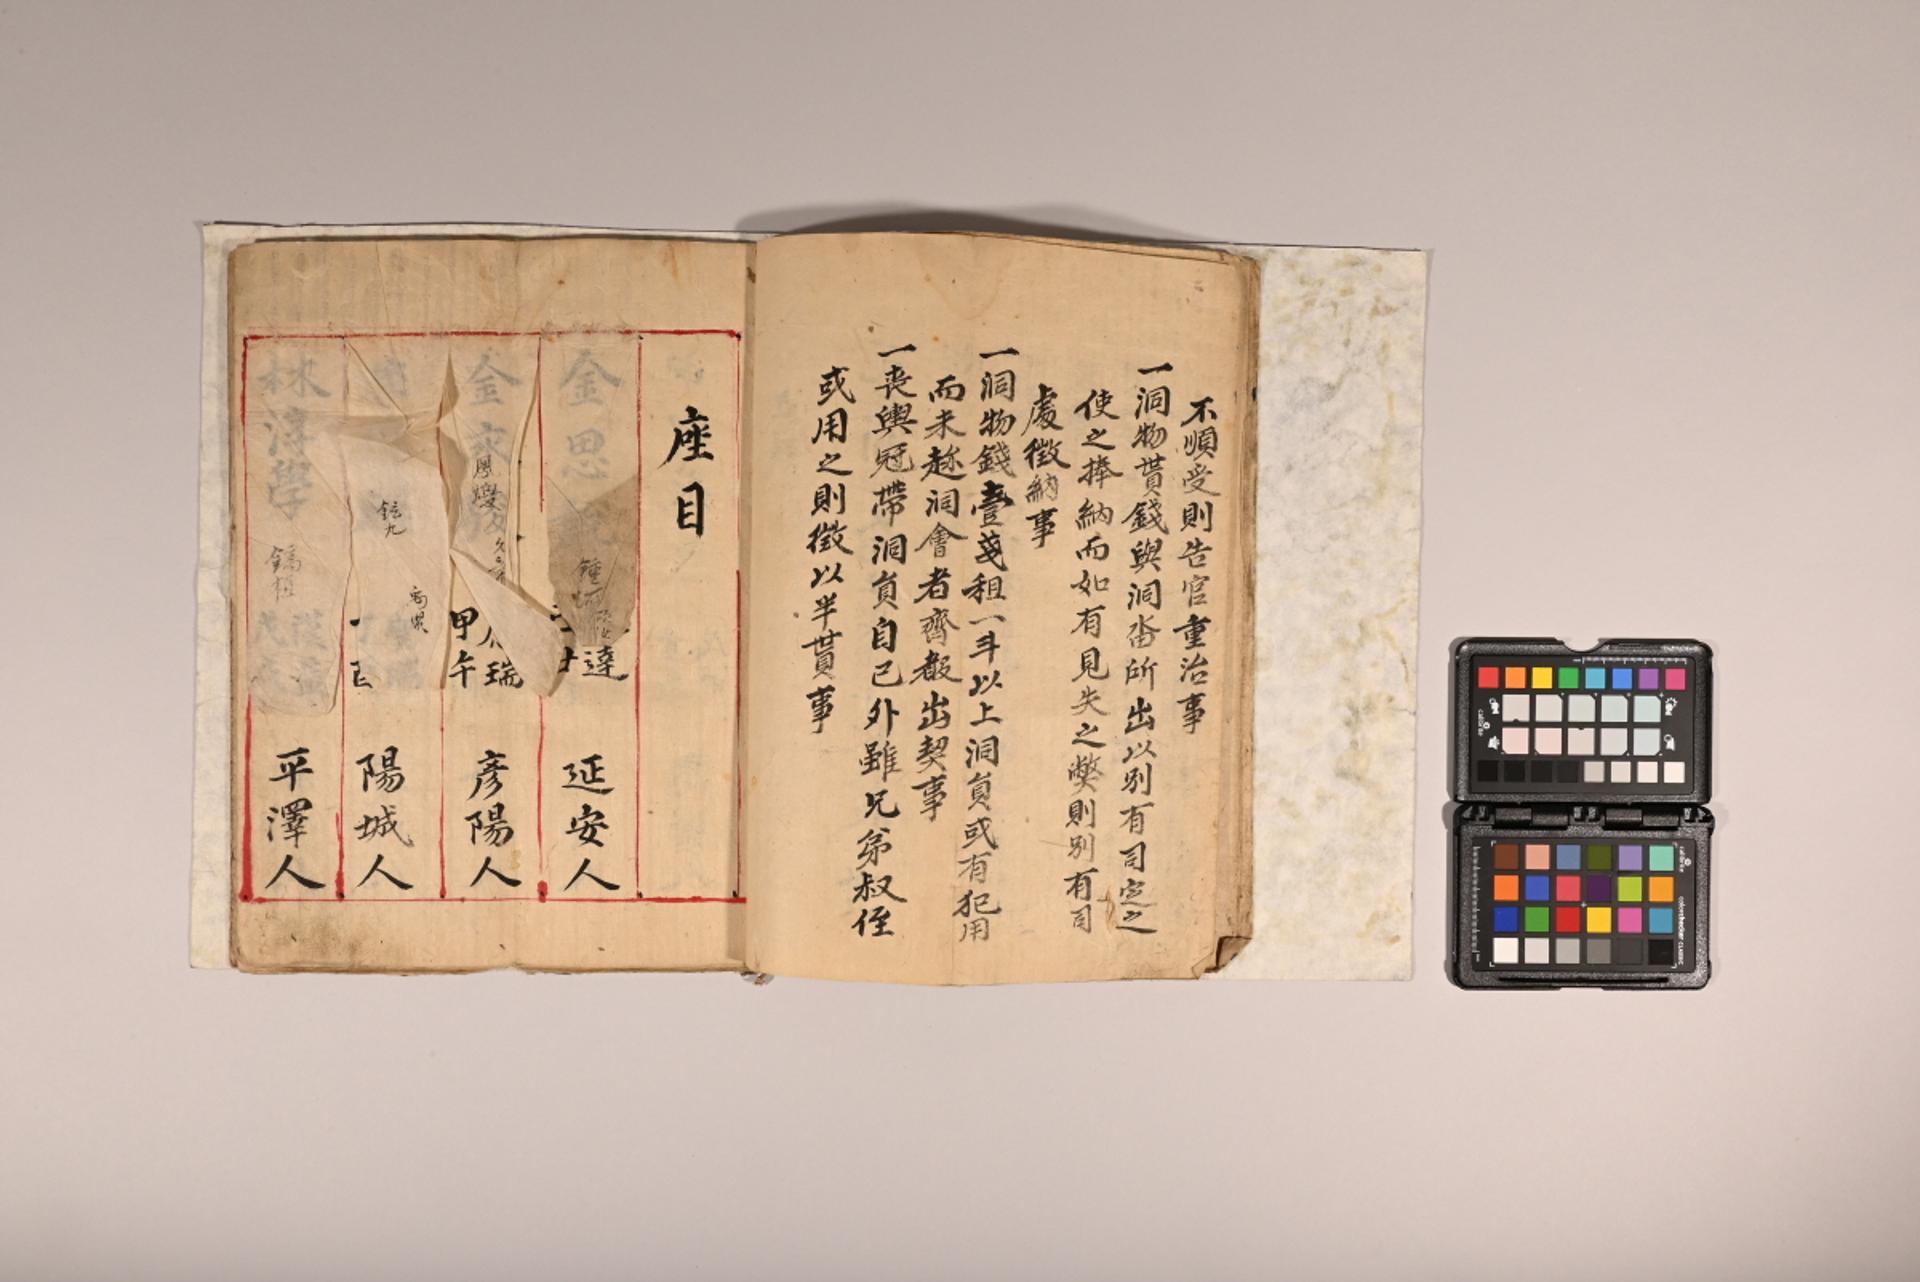 不順受則告官重治事
一洞物貰錢與洞畓所出以別有司定之
使之捧納而如有見失之弊則別有司
處徵納事
一洞物錢壹戔租一斗以上洞員或有犯用
而未趂洞會者齊殽出契事
一喪輿冠帶洞員自己外雖兄弟叔侄
或用之則徵以半貰事
座目
金思
達
延安人
金
瑞
甲午
彦陽人
鉉九
陽城人
林淳學
鎬
平澤人